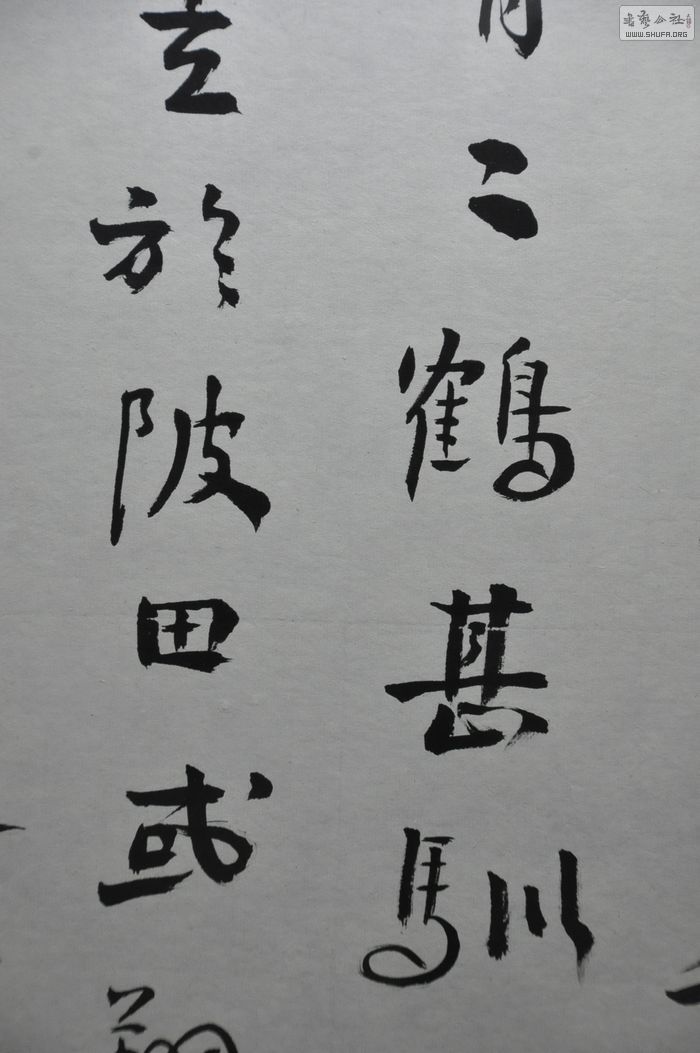 二鶴甚馴
立於陂田或
書藝公社
WWW.SHUFA.ORG